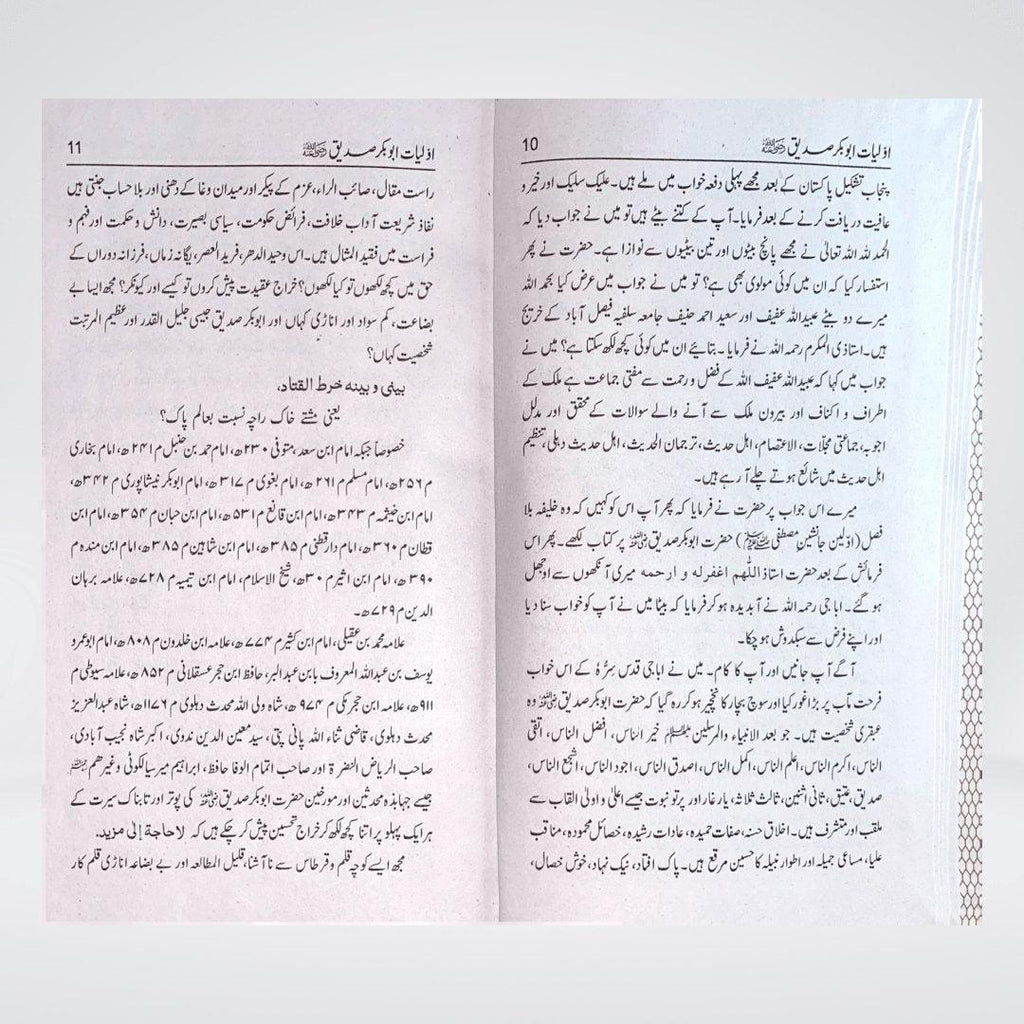 اوّلیات ابوبکر صدیق رضی اللہ عنہ 10
پنجاب تشکیل پاکستان کے بعد مجھے پہلی دفعہ خواب میں ملے ہیں۔ علیک سلیک اور خیر و
عافیت دریافت کرنے کے بعد فرمایا۔ آپ کے کتنے بیٹے ہیں تو میں نے جواب دیا کہ
الحمد للہ اللہ تعالیٰ نے مجھے پانچ بیٹوں اور تین بیٹیوں سے نوازا ہے۔ حضرت نے پھر
استفسار کیا کہ ان میں کوئی مولوی بھی ہے؟ تو میں نے جواب میں عرض کیا بحمد اللہ
میرے دو بیٹے عبیداللہ عفیف اور سعید احمد حنیف جامعہ سلفیہ فیصل آباد کے خریج
ہیں۔ استاذی المکرم رحمہ اللہ نے فرمایا۔ بتائیے ان میں کوئی کچھ لکھ سکتا ہے؟ میں نے
جواب میں کہا کہ عبیداللہ عفیف اللہ کے فضل و رحمت سے مفتی جماعت ہے ملک کے
اطراف و اکناف اور بیرون ملک سے آنے والے سوالات کے محقق اور مدلل
اجوبہ، جماعتی مجلّات، الاعتصام، اہل حدیث، ترجمان الحدیث، اہل حدیث دہلی، تنظیم
اہل حدیث میں شائع ہوتے چلے آ رہے ہیں۔
میرے اس جواب پر حضرت نے فرمایا کہ پھر آپ اس کو کہیں کہ وہ خلیفہ بلا
فصل (اوّلین جانشین مصطفی ﷺ) حضرت ابوبکر صدیق رضی اللہ عنہ پر کتاب لکھے۔ پھر اس
فرمائش کے بعد حضرت استاذ اللّٰهم اغفرله و ارحمه میری آنکھوں سے اوجھل
ہو گئے۔ ابا جی رحمہ اللہ نے آبدیدہ ہو کر فرمایا کہ بیٹا میں نے آپ کو خواب سنا دیا
اور اپنے فرض سے سبکدوش ہو چکا۔
آگے آپ جانیں اور آپ کا کام۔ میں نے ابا جی قدس سرّہٗ کے اس خواب
فرحت مآب پر بڑا غور کیا اور سوچ بچار کا نخچیر ہو کر رہ گیا کہ حضرت ابوبکر صدیق رضی اللہ عنہ وہ
عبقری شخصیت ہیں۔ جو بعد الانبیاء والمرسلین خیر الناس، افضل الناس، اتقی
الناس، اکرم الناس، اعلم الناس، اکمل الناس، اصدق الناس، اجود الناس، اشجع الناس،
صدیق، عتیق، ثانی اثنین، ثالث ثلاثہ، یار غار اور پرتو نبوت جیسے اعلیٰ و اولیٰ القاب سے
ملقب اور متشرف ہیں۔ اخلاق حسنہ، صفات حمیدہ، عادات رشیدہ، خصائل محمودہ، مناقب
علیا، مساعی جمیلہ اور اطوار نبیلہ کا حسین مرقع ہیں۔ پاک افتاد، نیک نہاد، خوش خصال،
اوّلیات ابوبکر صدیق رضی اللہ عنہ 11
راست مقال، صائب الراء، عزم کے پیکر اور میدان وغا کے دھنی اور بلا حساب جنتی ہیں
نفاذ شریعت آداب خلافت، فرائض حکومت، سیاسی بصیرت، دانش و حکمت اور فہم و
فراست میں فقید المثال ہیں۔ اس وحید الدھر، فرید العصر، یگانہ زماں، فرزانہ دوراں کے
حق میں کچھ لکھوں تو کیا لکھوں؟ خراج عقیدت پیش کروں تو کیسے اور کیونکر؟ مجھ ایسا بے
بضاعت، کم سواد اور اناڑی کہاں اور ابوبکر صدیق جیسی جلیل القدر اور عظیم المرتبت
شخصیت کہاں؟
بيني و بينه خرط القتاد،
یعنی مشتے خاک راچہ نسبت بعالم پاک؟
خصوصاً جبکہ امام ابن سعد، متوفی ۲۳۰ھ، امام احمد بن حنبل م ۲۴۱ھ، امام بخاری
م ۲۵۶ھ، امام مسلم م ۲۶۱ھ، امام بغوی م ۳۱۷ھ، امام ابوبکر نیشاپوری م ۳۴۲ھ،
امام ابن خیثمہ م ۳۴۳ھ، امام ابن قانع م ۵۳۱ھ، امام ابن حبان م ۳۵۴ھ، امام ابن
قطان م ۳۶۰ھ، امام دارقطنی م ۳۸۵ھ، امام ابن شاہین م ۳۸۵ھ، امام ابن مندہ م
۳۹۰ھ، امام ابن اثیر م ۳۰ھ، شیخ الاسلام، امام ابن تیمیہ م ۷۲۸ھ، علامہ برہان
الدین م ۷۲۹ھ۔
علامہ محمد بن عقیلی، امام ابن کثیر م ۷۷۴ھ، علامہ ابن خلدون م ۸۰۸ھ، امام ابو عمرو
یوسف بن عبداللہ المعروف بابن عبدالبر، حافظ ابن حجر عسقلانی م ۸۵۲ھ، علامہ سیوطی م
۹۱۱ھ، علامہ ابن حجر مکی م ۹۷۴ھ، شاہ ولی اللہ محدث دہلوی م ۱۱۷۶ھ، شاہ عبدالعزیز
محدث دہلوی، قاضی ثناء اللہ پانی پتی، سید معین الدین ندوی، اکبر شاہ نجیب آبادی،
صاحب الریاض النضرۃ اور صاحب اتمام الوفا حافظ، ابراہیم میر سیالکوٹی وغیرھم
جیسے جہابذہ محدثین اور مورخین حضرت ابوبکر صدیق رضی اللہ عنہ کی پوتر اور تابناک سیرت کے
ہر ایک پہلو پر اتنا کچھ لکھ کر خراج تحسین پیش کر چکے ہیں کہ لا حاجة إلى مزيد.
مجھ ایسے کوچہ قلم و قرطاس سے نا آشنا، قلیل المطالعہ اور بے بضاعہ اناڑی قلم کار